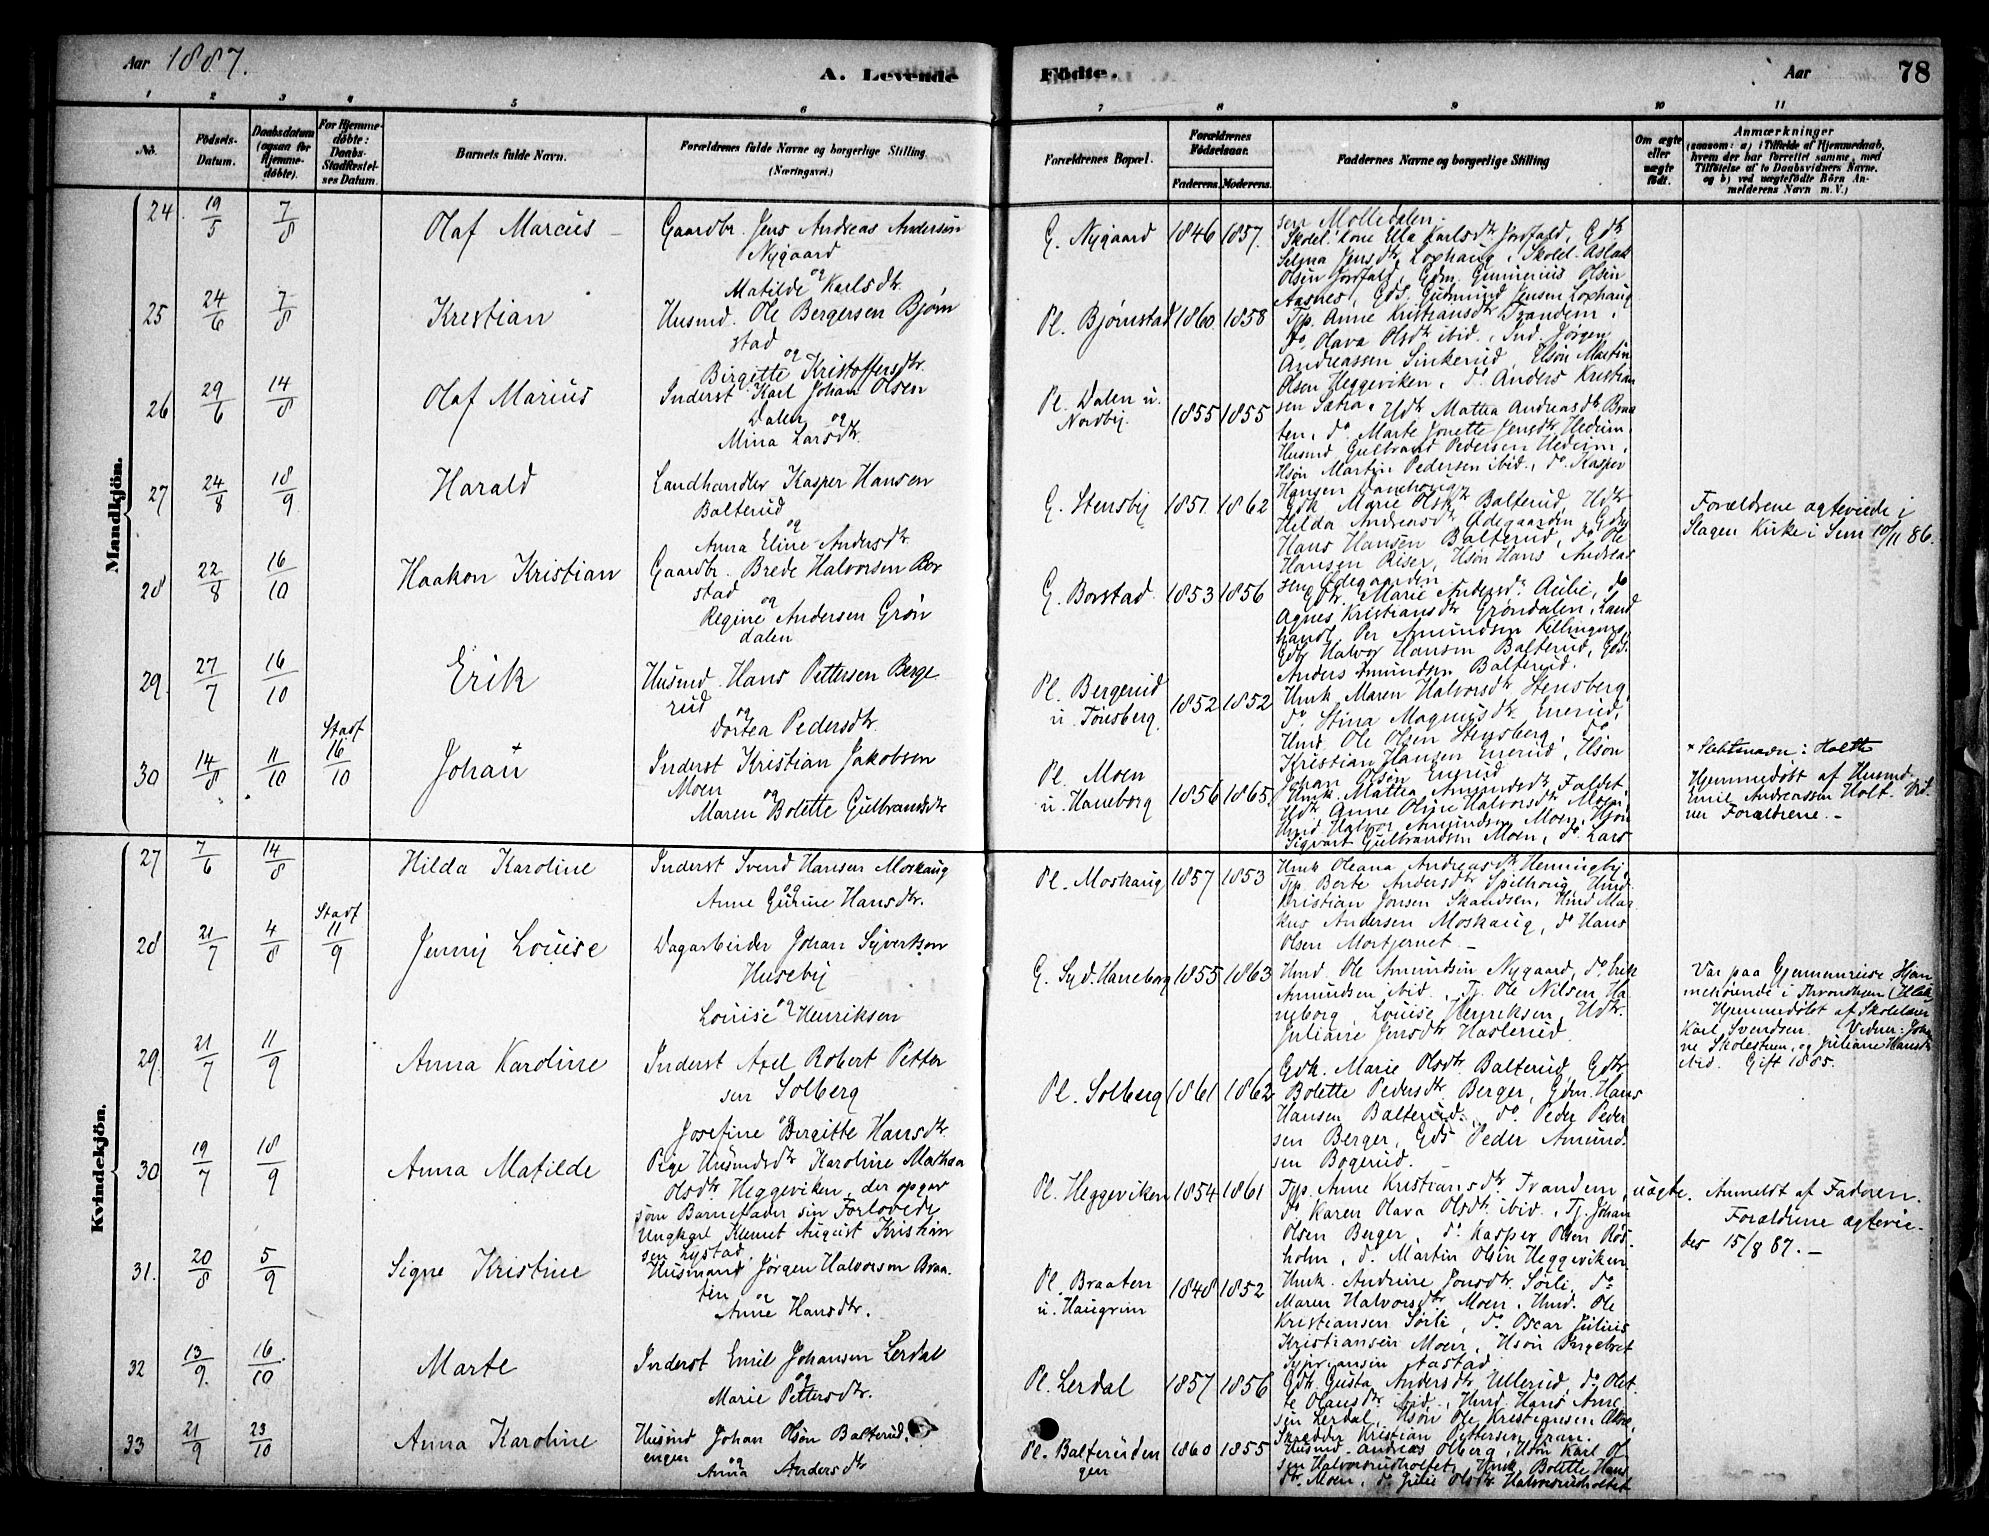 Aar 1887.
A. Levende
Födte.
Aar
78
1 2 3 4 5 6 7 8 9 10 11
No.
Födsels-Datum.
Daabsdatum (ogsaa for Hjemme-döbte).
For Hjemme-döbte: Daabs-Stadfæstel-ses Datum.
Barnets fulde Navn.
Forældrenes fulde Navne og borgerlige Stilling. (Næringsvei.)
Forældrenes Bopæl.
Forældrenes Födselsaar.
Faderens. Moderens.
Faddernes Navne og borgerlige Stilling
Om ægte eller uægte födt.
Anmærkninger (saasom: a) i Tilfælde af Hjemmedaab, hvem der har forrettet samme, med Tilföielse af to Daabsvidners Navne, og b) ved uægtefödte Börn An-melderens Navn m. V.)
Mandkjön.
24 19/5 7/8 Olaf Marcus
Gaardbr. Jens Andreas Andersen
Nygaard
og
Matilde Karlsdtr.
G. Nygaard 1846 1857.
sen Molledalen.
Selma Jensdtr. Loxhaug, Skolel. Aslak
Olsen Jorfald, Gdm. Gunnerius Olsen
Aasnes, Gds. Gudmund Jensen Loxhaug
25 24/6 7/8 Kristian
Husmd. Ole Bergersen Bjørn
stad
og
Birgitte Kristoffersdtr.
Pl. Bjørnstad 1860 1858
Tjp. Anne Kristiansdtr Trandem,
do Olava Olsdtr ibid., Ind. Jørgen
Andreassen Sinkerud, Hsøn Martin
Olsen Heggeviken, do Anders Kristian
sen Sætra.
26 29/6 14/8 Olaf Marius
Inderst Karl Johan Olsen
Dalen og
Mina Larsdtr.
Pl. Dalen u.
Nordby. 1855 1855
Hdtr Mathea Andreasdtr Braa
ten, do Marte Jonette Jensdtr Hedum,
Husmd Gulbrand Pedersen Hedum,
Hsøn Martin Pedersen ibid., do Kasper
Hansen
27 24/8 18/9 Harald
Landhandler Kasper Hansen
Balterud
og
Anna Eline Andersdtr.
G. Stensby 1851 1862
Gdk Marie Olsdtr Balterud, Hdtr
Hilda Andreasdtr Ødegaarden, Gdbr
Hans Hansen Balterud, do Ole
Hansen Riser, Hsøn Hans Andreas
sen Ødegaarden
Forældrene ægteviede i
Slagen Kirke i Sem 10/11 86.
28 22/8 16/10 Haakon Kristian
Gaardbr. Brede Halvorsen Bor
stad
og
Regine Andersen Grøn
dalen
G. Borstad. 1853 1856
Gdtr. Marie Andersdtr Aulie, do
Agnes Kristiansdtr Grøndalen, Land
handl. Per Amundsen Killingmo,
Gdbr Halvor Hansen Balterud, Gds.
Anders Amundsen Balterud.
29. 27/7 16/10 Erik
Husmd. Hans Pettersen Berge
rud
og
Dortea Pedersdtr.
Pl. Bergerud
u. Tønsberg. 1852 1852
Hmk. Maren Halvorsdtr Stensberg,
do Stina Magnusdtr Enerud,
Hmd. Ole Olsen Stensberg, do
Kristian Hansen Enerud, Hsøn
Johan Olsen Enerud
30 14/8 11/10 Stadf 16/10 Johan +
Inderst Kristian Jakobsen
Moen
og
Maren Bolette Gulbrandsdtr
Pl. Moen
u. Haneborg 1856 1865.
Hmk. Mathea Amundsdtr Faldet,
Hdtr Anne Oline Halvorsdtr Moen,
Hmd Halvor Amundsen Moen, Hsøn
Sigvart Gulbrandsen Moen, do Lars
+ Slektsnavn: Holth
Hjemmedøbt af Husmd.
Emil Andreassen Holt. Vid.
ner Forældrene. –
Kvindekjön.
27 7/6 14/8 Hilda Karoline
Inderst Svend Hansen Moskaug
og
Anne Gurine Hansdtr.
Pl. Moskaug 1857 1853
Hmk Oleana Andreasdtr Henningby,
Tjp. Berte Andersdtr Spilhoug, Hmd.
Kristian Jonsen Skandsen, Hmd Mar
kus Andersen Moskaug, do Hans
Olsen Mortjernet. –
28 21/7 4/8 Stadf 11/9 Jenny Louise
Dagarbeider Johan Syvertson
Huseby
og
Louise Henriksen
G. Syd. Haneborg 1855 1863
Hmd. Ole Amundsen Nygaard, do Erik
Amundsen ibid., Tj. Ole Nilsen Ha
neborg, Louise Henriksen, Hdtr.
Juliane Jensdtr Haslerud.
Var paa Gjennemreise. Hjem
mehørende i
Hjemmedøbt af Skolelærer
Karl Svendsen. Vidner: Joha
ne Skolestuen, og Juliane Hansdtr
ibid. Gift 1885.
29. 21/7 11/9 Anna Karoline
Inderst Axel Robert Petter
sen Solberg
og
Josefine Birgitte Hansdtr.
Pl. Solberg 1861 1862
Gdk. Marie Olsdtr Balterud, Gdtr
Bolette Pedersdtr Berger, Gdm. Hans
Hansen Balterud, do Peder Peder
sen Berger, Gds Peder Amund
sen Bøgerud.
30 19/7 18/9 Anna Matilde
Pige Husmdsdtr Karoline Mathea
Olsdtr Heggeviken, der opgav
som Barnefader sin Forlovede
Ungkarl Klemet August Kristian
sen Lystad.
Pl. Heggeviken 1854 1861
Tjp. Anne Kristiansdtr Trandem,
do Karen Olava Olsdtr ibid., Tj. Johan
Olsen Berger, do Kasper Olsen Ros
holm, do Martin Olsen Heggeviken.
uægte.
Anmeldt af Faderen.
Forældrene ægtevie-
des 15/8 87. –
31. 20/8 5/9 Signe Kristine
Husmand Jørgen Halvorsen Braa
ten
og
Anne Hansdtr.
Pl. Braaten
u. Haugrim 1848 1852
Hmk. Andrine Jonsdtr Sørli, do
Maren Halvorsdtr Moen, Hmd. Ole
Kristiansen Sørli, do Oscar Julius
Kristiansen Moen, Hsøn Ingebret
Aastad.
32 13/9. 16/10 Marte
Inderst Emil Johansen Lerdal
og
Marie Pettersdtr.
Pl. Lerdal 1857 1856
Gdtr. Gusta Andersdtr Ullerud, do Olet
te Olausdtr ibid., Hmd Hans Arne
sen Lerdal, Hsøn Ole Kristiansen
Skrædder Kristian Pettersen Gran.
33 21/9 23/10 Anna Karoline
Husmd Johan Olsen Balterud.
engen
og
Anna Andersdtr
Pl. Balteruden
gen 1860 1855
Husmd. Andreas Olberg, Hsøn Karl Ol
sen Halvorsrudholtet, Hmk. Bolette Hans
dtr. Moen, do Julie Olsdtr Halvorsrudholtet